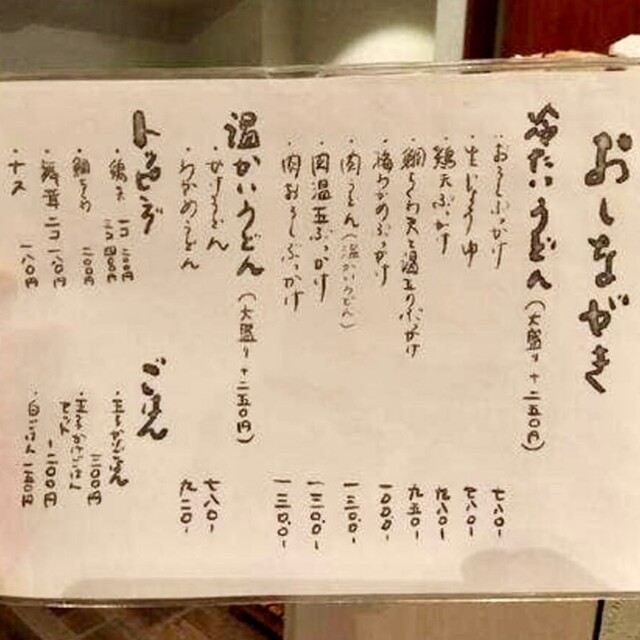 おしながき
冷たいうどん（大盛り＋二五〇円）
・おろしぶっかけ 七八〇-
・生じょうゆ 七八〇-
・鶏天ぶっかけ 九八〇-
・鯛ちくわ天と温玉のぶっかけ 九五〇-
わかめぶっかけ 一〇〇〇-
・肉うどん（温かいうどん） 一三〇〇-
・肉温玉ぶっかけ 一三〇〇-
・肉おろしぶっかけ 一三〇〇-
温かいうどん（大盛り＋二五〇円）
・かけうどん 七八〇-
・わかめうどん 九二〇-
トッピング
・鶏天 一コ 二〇〇円
二コ 四〇〇円
・鯛ちくわ 二〇〇円
・舞茸 二コ 一八〇円
・ナス 一八〇円
ごはん
・玉子かけごはん 三〇〇円
・玉子かけごはん
セット 二〇〇円
・白ごはん 二五〇円